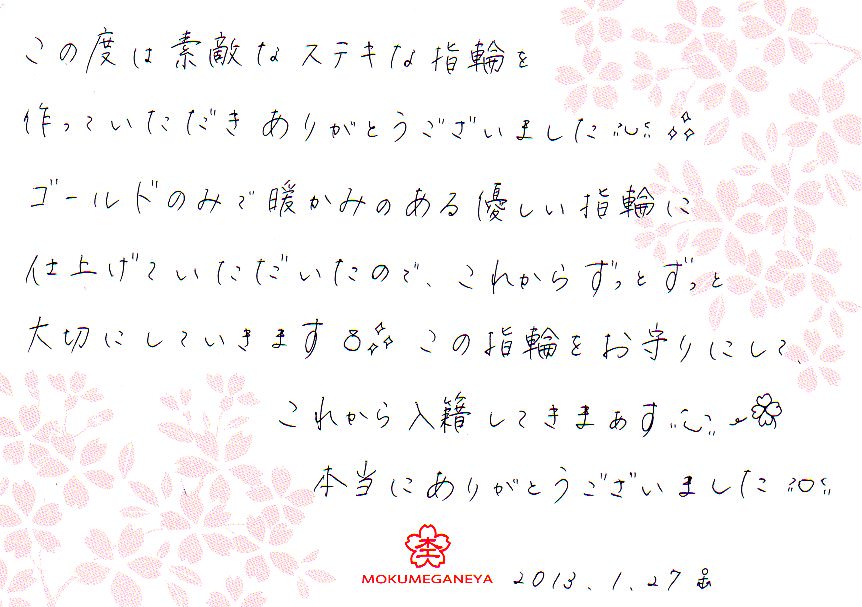 この度は素敵なステキな指輪を
作っていただきありがとうございました
ゴールドのみで暖かみのある優しい指輪に
仕上げていただいたので、これからずっとずっと
大切にしていきます この指輪をお守りにして、
これから入籍してきまぁす
本当にありがとうございました
MOKUMEGANEYA 2013.1.27